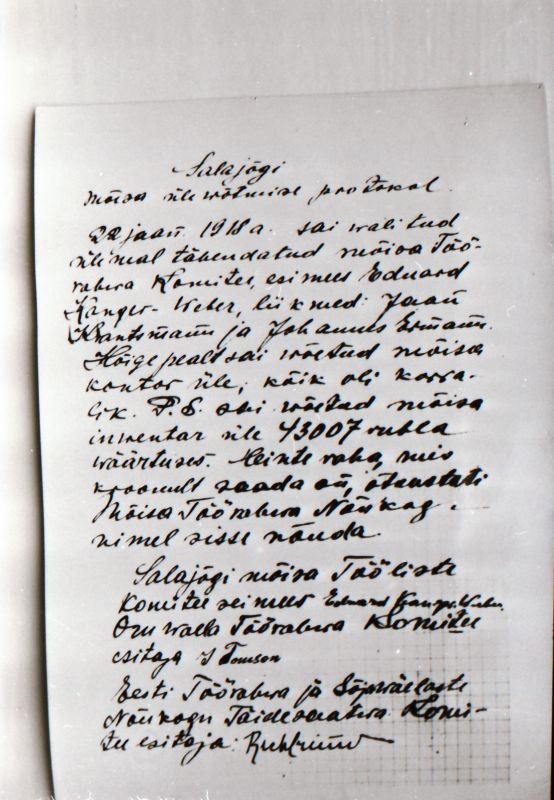 Salajõgi
mõisa ülewõtmise protokol.
22 jaan. 1918 a. sai walitud
ülemal tähendatud mõisa Töö-
rahwa Komitee, esimees Eduard
Kanger-Weber, liikmed: Jaan
Krantsmann ja Johannes Ermann.
Kõige pealt sai wõetud mõisa
kontor üle, kõik oli korra-
lik. P.S. sai wõetud mõisa
inwentar üle 43007 rubla
wäärtuses. Heinte raha, mis
kroonult saada on, otsustati
Mõisa Töörahwa Nõukog.
nimel sisse nõuda.
Salajõgi mõisa Tööliste
Komitee esimees Eduard Kanger-Weber.
Oru walla Töörahwa Komitee
esitaja J Tomson
Eesti Töörahwa ja Sõjawäelaste
Nõukogu Täidesaatwa Komi-
tee esitaja: